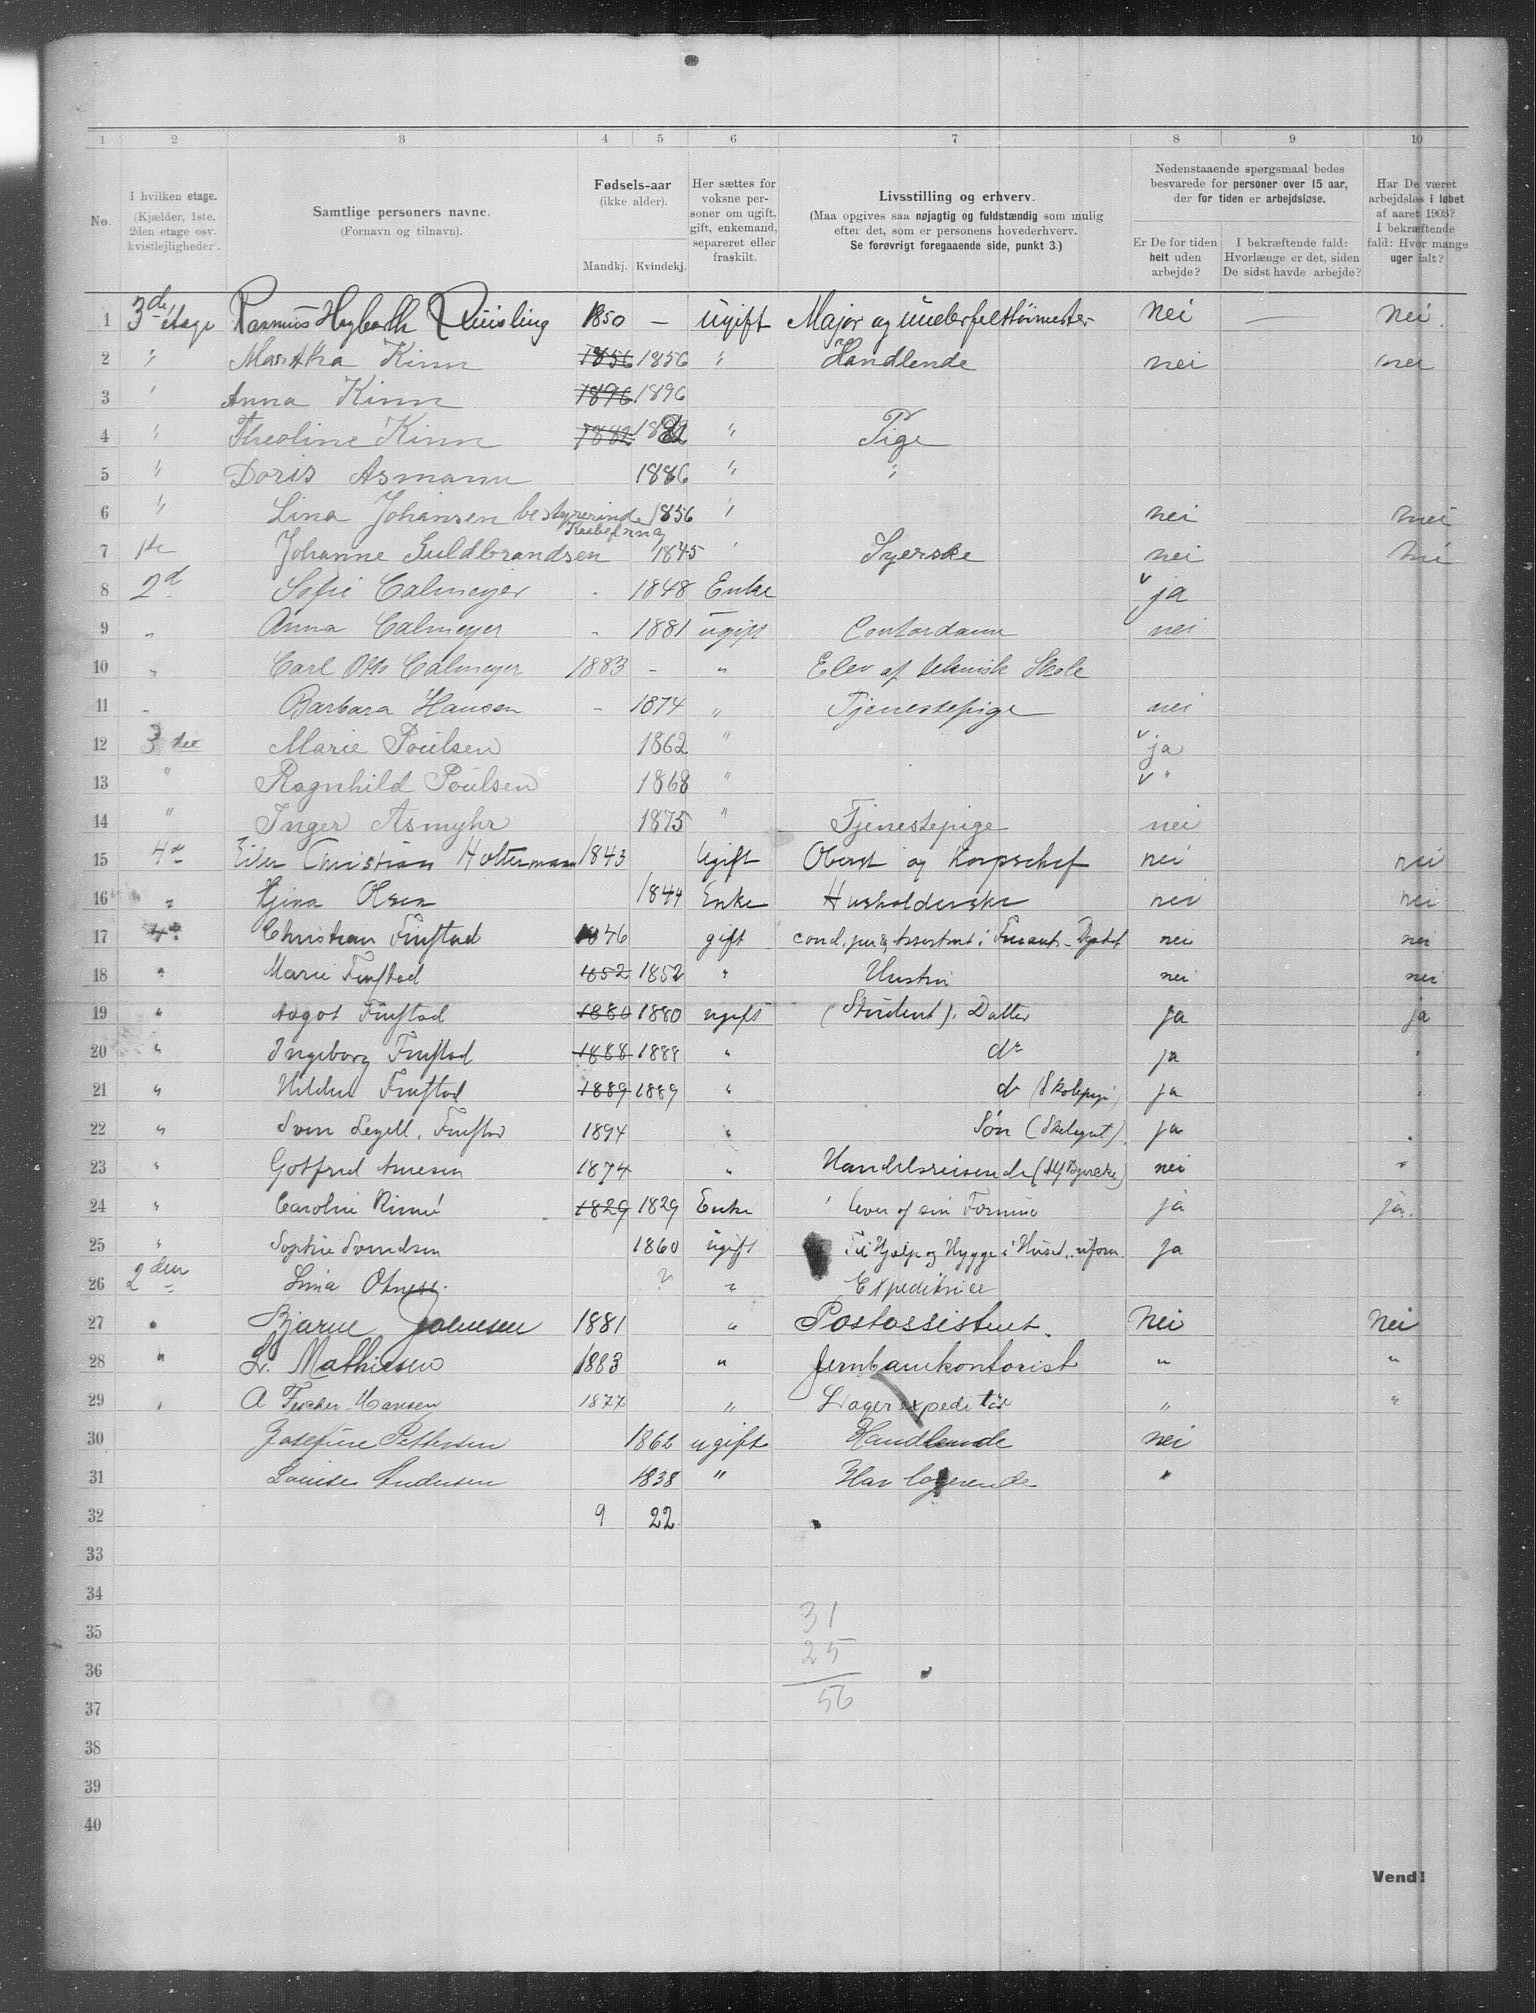 1 2 3 4 5 6 7 8 9 10
No.
I hvilken etage.
(Kjælder, 1ste.
2den etage osv.
kvistlejligheder.
Samtlige personers navne.
(Fornavn og tilnavn).
Fødsels-aar
(ikke alder).
Mandkj. Kvindekj.
Her sættes for
voksne per-
soner om ugift,
gift, enkemand,
separeret eller
fraskilt.
Livsstilling og erhverv.
(Maa opgives saa nøjagtig og fuldstændig som mulig
efter det, som er personens hovederhverv.
Se forøvrigt foregaaende side, punkt 3.)
Nedenstaaende spørgsmaal bedes
besvarede for personer over 15 aar,
der for tiden er arbejdsløse.
Er De for tiden
helt uden
arbejde?
I bekræftende fald:
Hvorlænge er det, siden
De sidst havde arbejde?
Har De været
arbejdsløs i løbet
af aaret 1903?
I bekræftende
fald: Hvor mange
uger ialt?
1 3de étage Rasmus Quisling 1850 — ugift Major og Nei — Nei.
2 " Martha Kinn 1856 1856 " Handlende nei nei
3 " Anna Kinn 1896 1896
4 " Theoline Kinn 1882 1882 " Pige
5 " Doris Asmann 1886 " "
6 " Lina Johansen bestyrerinde 1856 " nei nei
7 1ste Johanne Guldbrandsen 1845 " Syerske nei nei
8 2d Sofie Calmeyer - 1848 Enke v ja
9 " Anna Calmeyer - 1881 ugift Contordame nei
10 " Carl Otto Calmeyer 1883 - " Elev af teknisk Skole
11 - Barbara Hansen - 1874 " Tjenestepige nei
12 3die Marie Poulsen 1862 " v ja
13 " Ragnhild Poulsen 1868 " v "
14 " Inger Asmyhr 1875 " Tjenestepige nei
15 4d Eiler Christian Holtermann 1843 Ugift Oberst og Korpschef nei nei
16 " Gina Olsen 1844 Enke Husholderske nei nei
17 4de Christian Finstad 1846 gift nei nei
18 " Marie Finstad 1852 1852 " Hustru nei nei
19 " Aagot Finstad 1880 1880 ugift (Student). Datter ja ja
20 " Ingeborg Finstad 1888 1888 " do ja "
21 " Hilda Finstad 1889 1889 " do (Skolepige) ja "
22 " Finstad 1894 " Søn (Skolegut). ja "
23 " Gotfred Arnesen 1874 " Handelsreisende nei "
24 " Caroline 1829 1829 Enke lever af sin Formue ja ja.
25 " Sophie Svendsen 1860 ugift Til Hjælp og Hygge i Huset ja
26 2den Lina ? " Expeditrice
27 " Bjarne Johnesen 1881 " Postassistent. Nei Nei
28 " L. Mathiesen 1883 " Jernbanekontorist " "
29 " A Fischer Hansen 1877 " Lagerexpeditør " "
30 Josefine Pettersen 1862 ugift Handlende nei
31 Louise Andersen 1838 " Har logerende "
32 9 22
33
34
35 31
36 25
37 56
38
39
40
Vend!